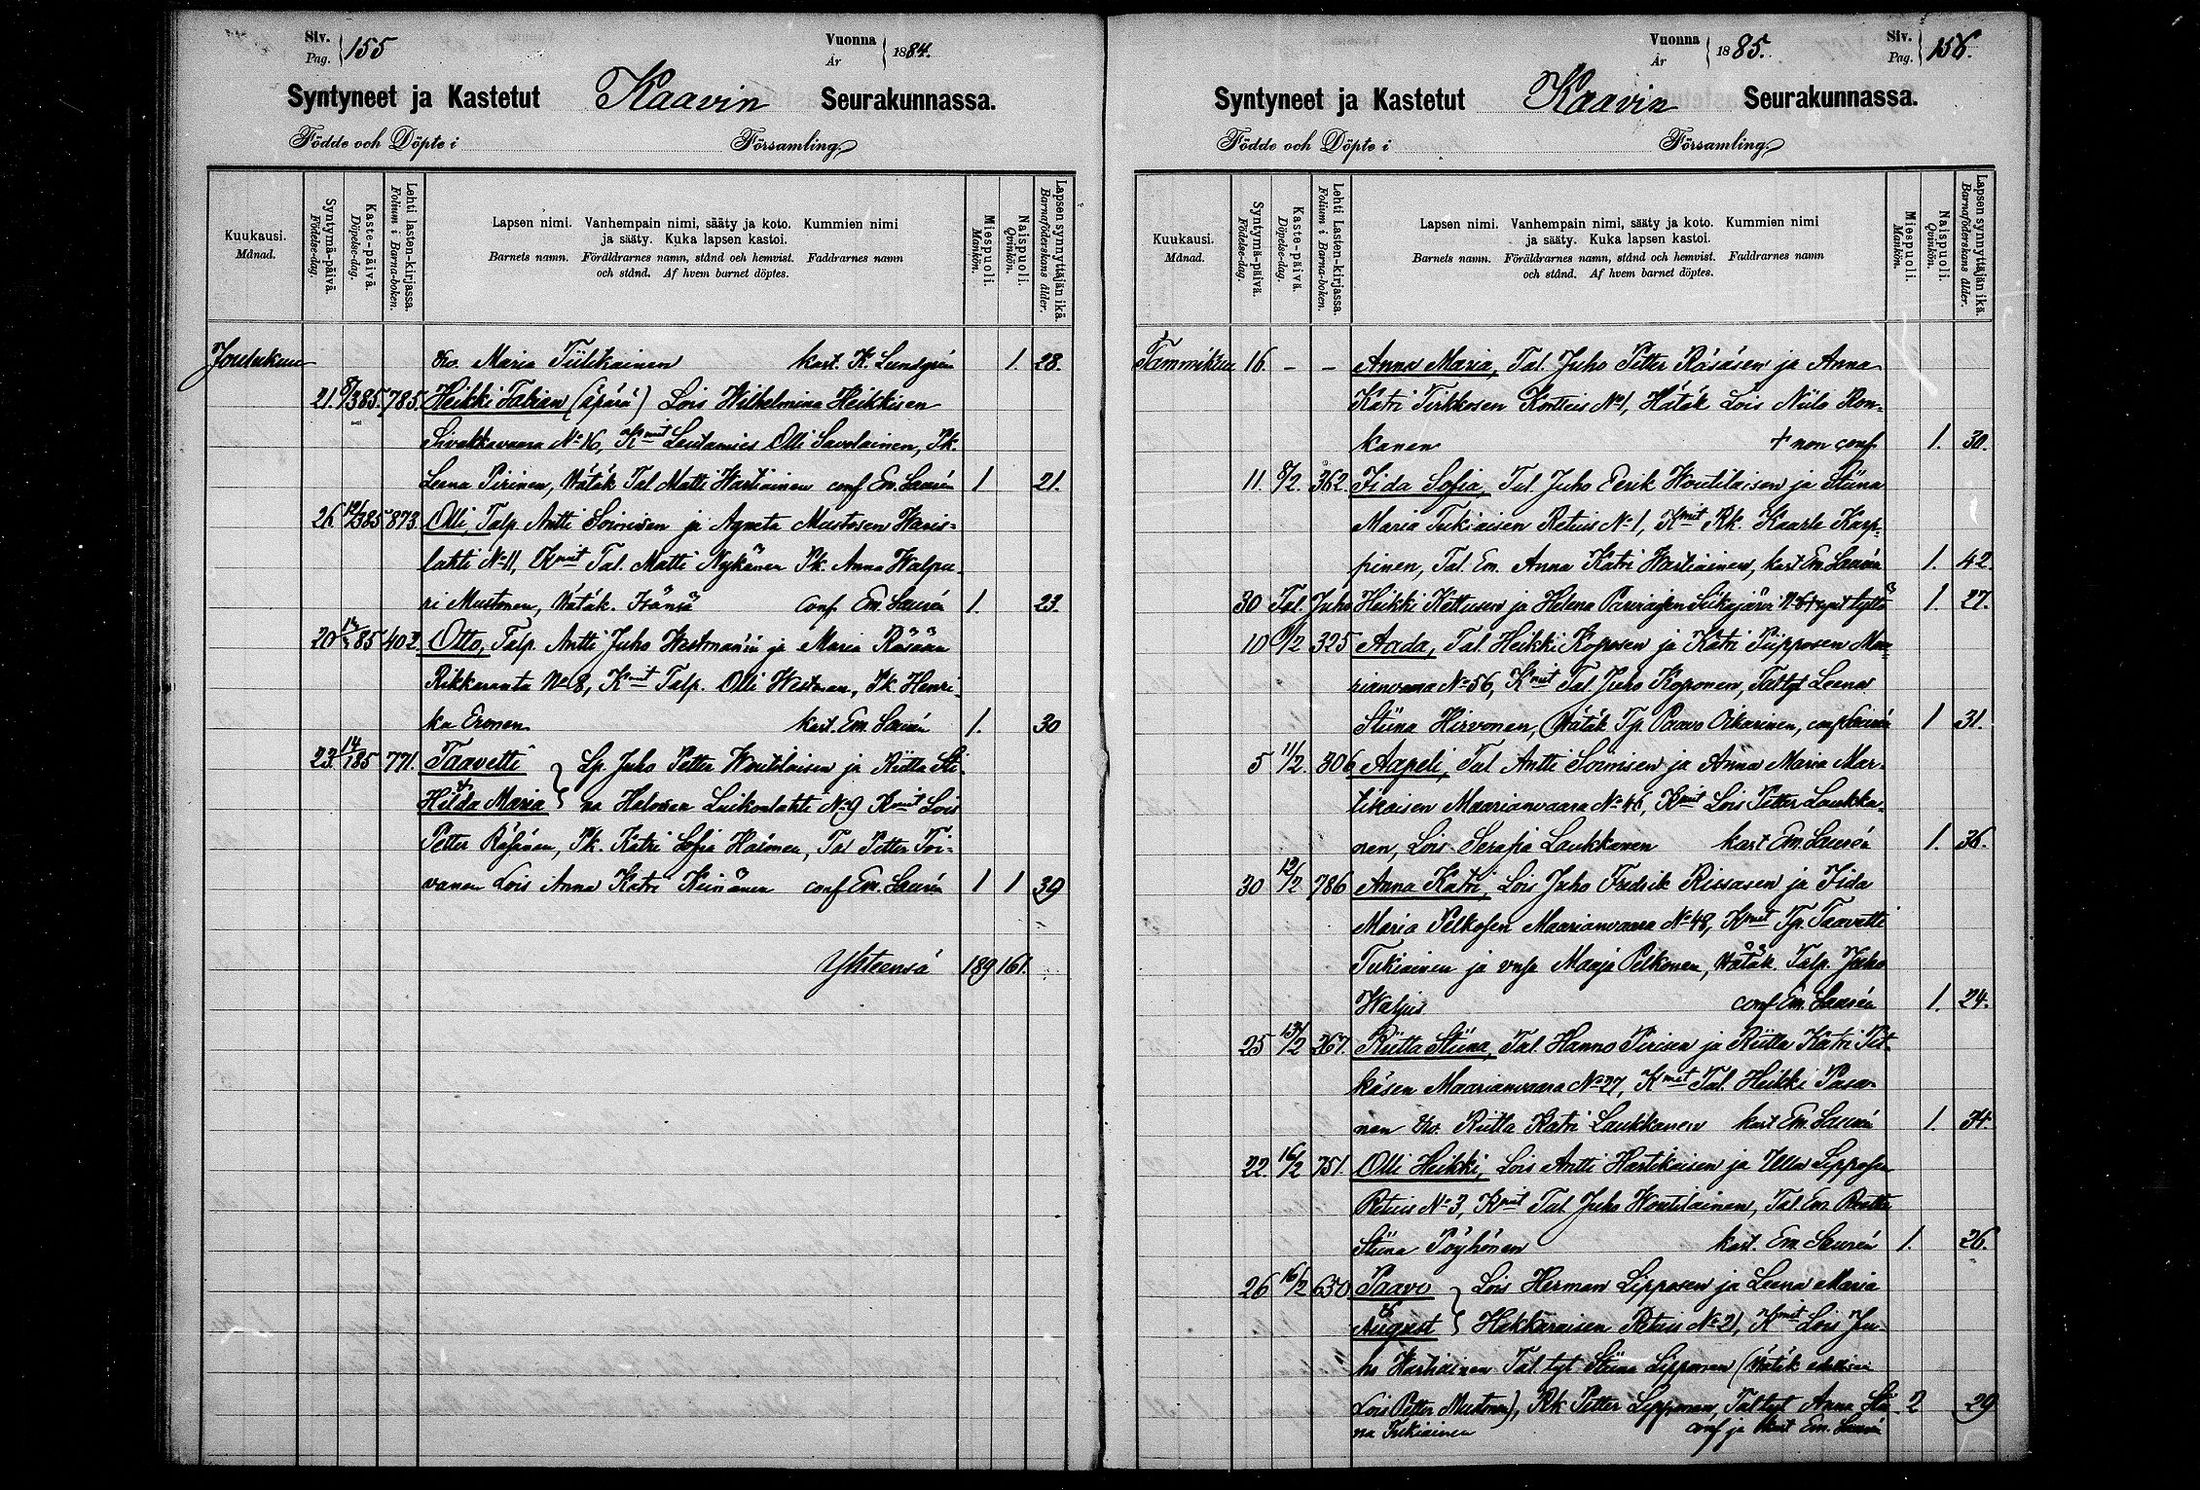 Siv.
Pag. 155
Vuonna
År 1884.
Syntyneet ja Kastetut Kaavin Seurakunnassa.
Födde och Döpte i Församling
Kuukausi.
Månad.
Syntymä-päivä.
Födelse-dag.
Kaste-päivä.
Döpelse-dag.
Lehti lasten-kirjassa.
Folium i Barna-boken.
Lapsen nimi. Vanhempain nimi, sääty ja koto. Kummien nimi
ja sääty. Kuka lapsen kastoi.
Barnets namn. Föräldrarnes namn, stånd och hemvist. Faddrarnes namn
och stånd. Af hvem barnet döptes.
Miespuoli.
Mankön.
Naispuoli.
Qvinkön.
Lapsen synnyttäjän ikä.
Barnaföderskans ålder.
Joulukuu Maria Tiilikainen kast. K. Lundgrén 1. 28.
21. 8/3 85. 785. Heikki Fabian (äpärä) Lois Wilhelmina Heikkisen
Sivakkavaara No 16, Kmit Lautamies Olli Savolainen, Pk.
Leena Pirinen, Hätäk Tal Matti Hartiainen conf Em. Laurén 1 21.
26 12/3 85 873. Olli, Talp. Antti Soinisen ja Agneta Mustosen Waris-
lahti No 11, Kmit Tal. Matti Nykänen Pk. Anna Walpu-
ri Mustonen, Hätäk. conf. Em. Laurén 1. 23.
20 85 402. Otto, Talp. Antti Juho Westman'in ja Maria Räsäsen
Rikkaranta No 8, Kmit Talp. Olli Westman, Pk. Henri-
ka Eronen kast. Em. Laurén 1. 30
23. 14/1 85 771. Taavetti } Lp. Juho Petter Woutilaisen ja Riitta Sti-
Hilda Maria } na Halosen Luikonlahti No 9 Kmit Lois
Petter Räsänen, Pk. Katri Sofia Halonen, Tal Petter Toi-
vanen Lois Anna Katri Heinänen conf Em. Laurén 1 1 39
Yhteensä 189 161.
Vuonna
År 1885.
Siv.
Pag. 156.
Syntyneet ja Kastetut Kaavin Seurakunnassa.
Födde och Döpte i Församling
Kuukausi.
Månad.
Syntymä-päivä.
Födelse-dag.
Kaste-päivä.
Döpelse-dag.
Lehti Lasten-kirjassa.
Folium i Barna-boken.
Lapsen nimi. Vanhempain nimi, sääty ja koto. Kummien nimi
ja sääty. Kuka lapsen kastoi.
Barnets namn. Föräldrarnes namn, stånd och hemvist. Faddrarnes namn
och stånd. Af hvem barnet döptes.
Miespuoli.
Mankön.
Naispuoli.
Qvinkön.
Lapsen synnyttäjän ikä.
Barnaföderskans ålder.
Tammikuu 16. - - Anna Maria, Tal. Juho Petter Räsäsen ja Anna
Katri Tirkkosen Kortteis No 1, Hätäk Lois Niilo Ron-
kanen + non conf 1. 30.
11. 8/2. 362. Iida Sofia, Tal. Juho Eerik Woutilaisen ja Stiina
Maria Tukiaisen Retuis No 1, Kmit Rk. Kaarle Karp-
pinen, Tal. Em. Anna Katri Hartiainen, kast Em. Laurén 1. 42.
30 Tal. Juho Heikki Kettusen ja Helena Parviaisen Siikajärvi No 8 + synt. tyttö 1. 27.
10 9/2 325 Aada, Tal. Heikki Koposen ja Katri Piipposen Maa-
rianvaara No 56, Kmit Tal. Juho Koponen, Tal tyt Leena
Stiina Hirvonen, (Hätäk Tp. Paavo Oikarinen, conf Laurén 1 31.
5 11/2. 306 Aapeli, Tal Antti Soinisen ja Anna Maria Mar-
tikaisen Maarianvaara No 46, Kmit Lois Petter Laukka-
nen, Lois Serafia Laukkanen kast Em. Laurén 1. 36.
30 12/2 786 Anna Katri, Lois Juho Fredrik Rissasen ja Iida
Maria Pelkosen Maarianvaara No 48, Kmit Tp. Taavetti
Tukiainen ja vmo Maaja Pelkonen, Hätäk. Talp. Juho
Waljus conf Em. Laurén 1. 24.
25 13/2 267. Riitta Stiina, Tal. Hanno Pirisen ja Riitta Katri Pit-
käsen Maarianvaara No 27, Kmit Tal. Heikki Pasa-
nen Riitta Katri Laukkanen kast Em Laurén 1. 34.
22. 16/2 751. Olli Heikki, Lois Antti Hartikaisen ja Ulla Lipposen
Retuis No 3, Kmit Tal Juho Woutilainen, Tal. Em.
Stiina Pöyhönen kast. Em. Laurén 1. 26.
26 16/2 630 Paavo } Lois Herman Lipposen ja Leena Maria
August } Hakkaraisen Retuis No 21, Kmit Lois Ju-
ho Hartiainen Tal. tyt Stiina Lipponen (Hätäk
Lois Petter Mustonen), Rk Petter Lipponen, Tal tyt Anna Stii 2 29
na Tukiainen conf ja kast Em. Laurén